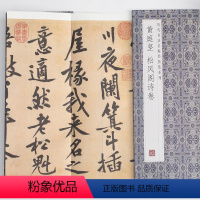 川夜闌箕斗插
屋椽我來名之
意適然老松魁
黄庭坚 松风阁诗卷
粉象优品